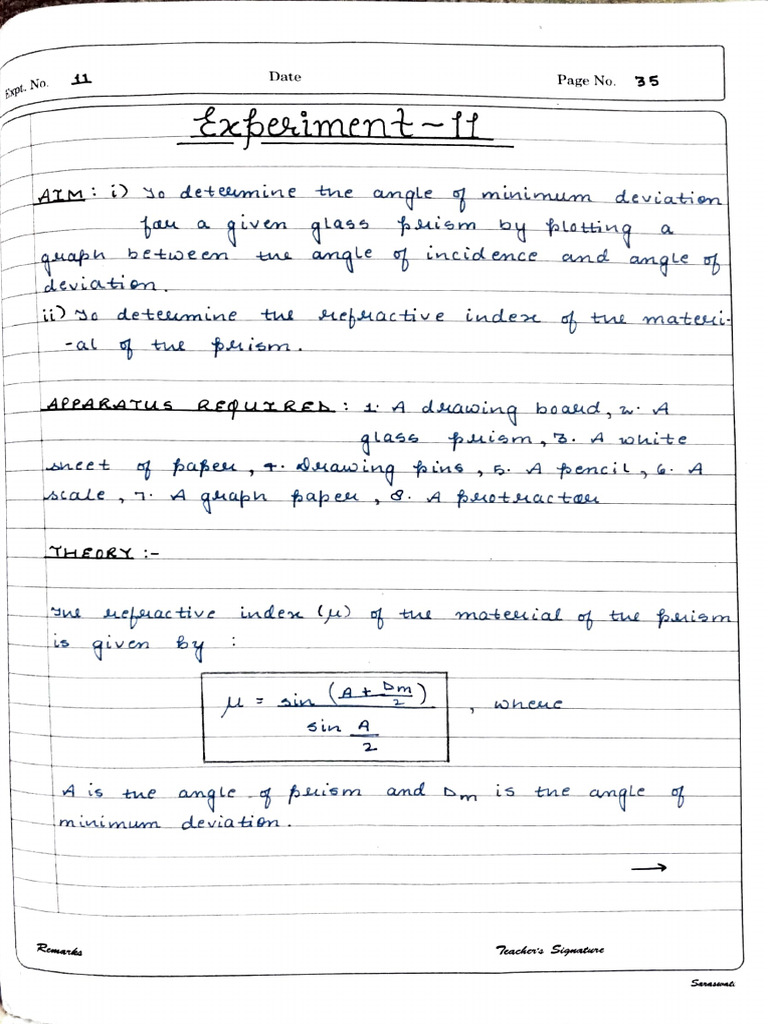 Expt. No. 11 Date Page No. 35
Experiment-11
AIM: i) To determine the angle of minimum deviation
for a given glass prism by plotting a
graph between the angle of incidence and angle of
deviation.
ii) To determine the refractive index of the materi-
-al of the prism.
APPARATUS REQUIRED: 1. A drawing board, 2. A
glass prism, 3. A white
sheet of paper, 4. Drawing pins, 5. A pencil, 6. A
scale, 7. A graph paper, 8. A protractor
THEORY :-
The refractive index (μ) of the material of the prism
is given by :
μ = sin (A + Dm/2) / sin A/2 , where
A is the angle of prism and Dm is the angle of
minimum deviation.
→
Remarks Teacher's Signature
Saraswati